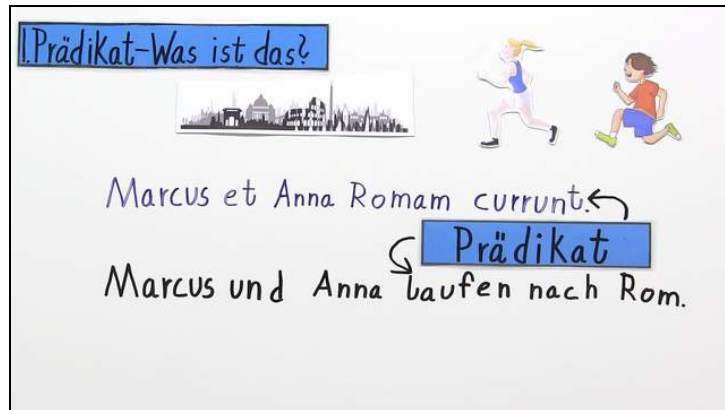 1. Prädikat-Was ist das?
Marcus et Anna Romam currunt.
Prädikat
Marcus und Anna laufen nach Rom.